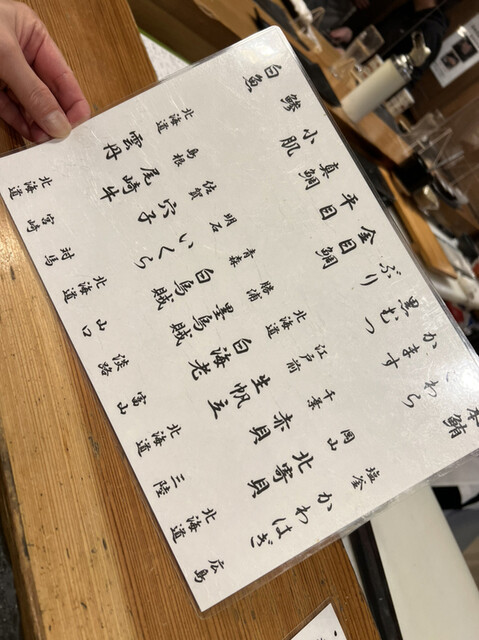 本鮪 塩釜
さわら 岡山
かます 千葉
黒むつ 江戸前
ぶり 北海道
金目鯛 勝浦
平目 青森
真鯛 明石
小肌 佐賀
鯵 島根
白魚 北海道
かわはぎ 広島
北寄貝 北海道
赤貝 三陸
生帆立 北海道
白海老 富山
墨烏賊
白烏賊 山口
いくら 北海道
穴子 対馬
尾崎牛 宮崎
雲丹 北海道